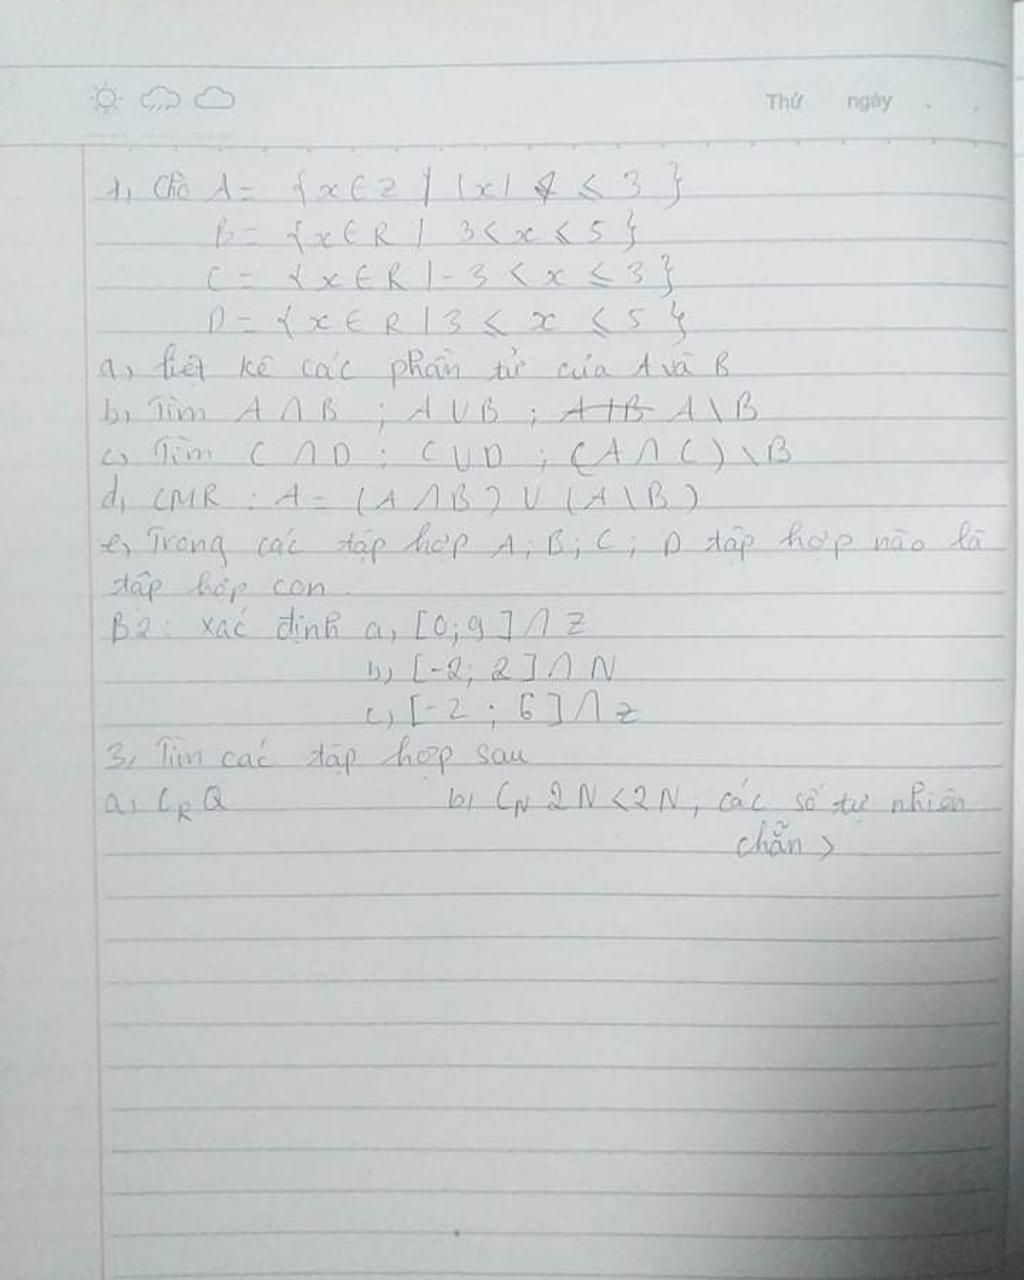 Thứ ngày . .
1, Cho A = { x ∈ Z | |x| ≤ 3 }
B = { x ∈ R | 3 < x < 5 }
C = { x ∈ R | -3 < x ≤ 3 }
D = { x ∈ R | 3 ≤ x ≤ 5 }
a, liệt kê các phần tử của A và B
b, Tìm A ∩ B ; A ∪ B ; A \ B
c, Tìm C ∩ D ; C ∪ D ; (A ∩ C) \ B
d, CMR : A = (A ∩ B) ∪ (A \ B)
e, Trong các tập hợp A; B; C; D tập hợp nào là
tập hợp con.
B2: Xác định a, [0; 9] ∩ Z
b, [-2; 2] ∩ N
c, [-2 ; 6] ∩ Z
3, Tìm các tập hợp sau
a, C_R Q b, C_N 2N <2N, các số tự nhiên
chẵn >